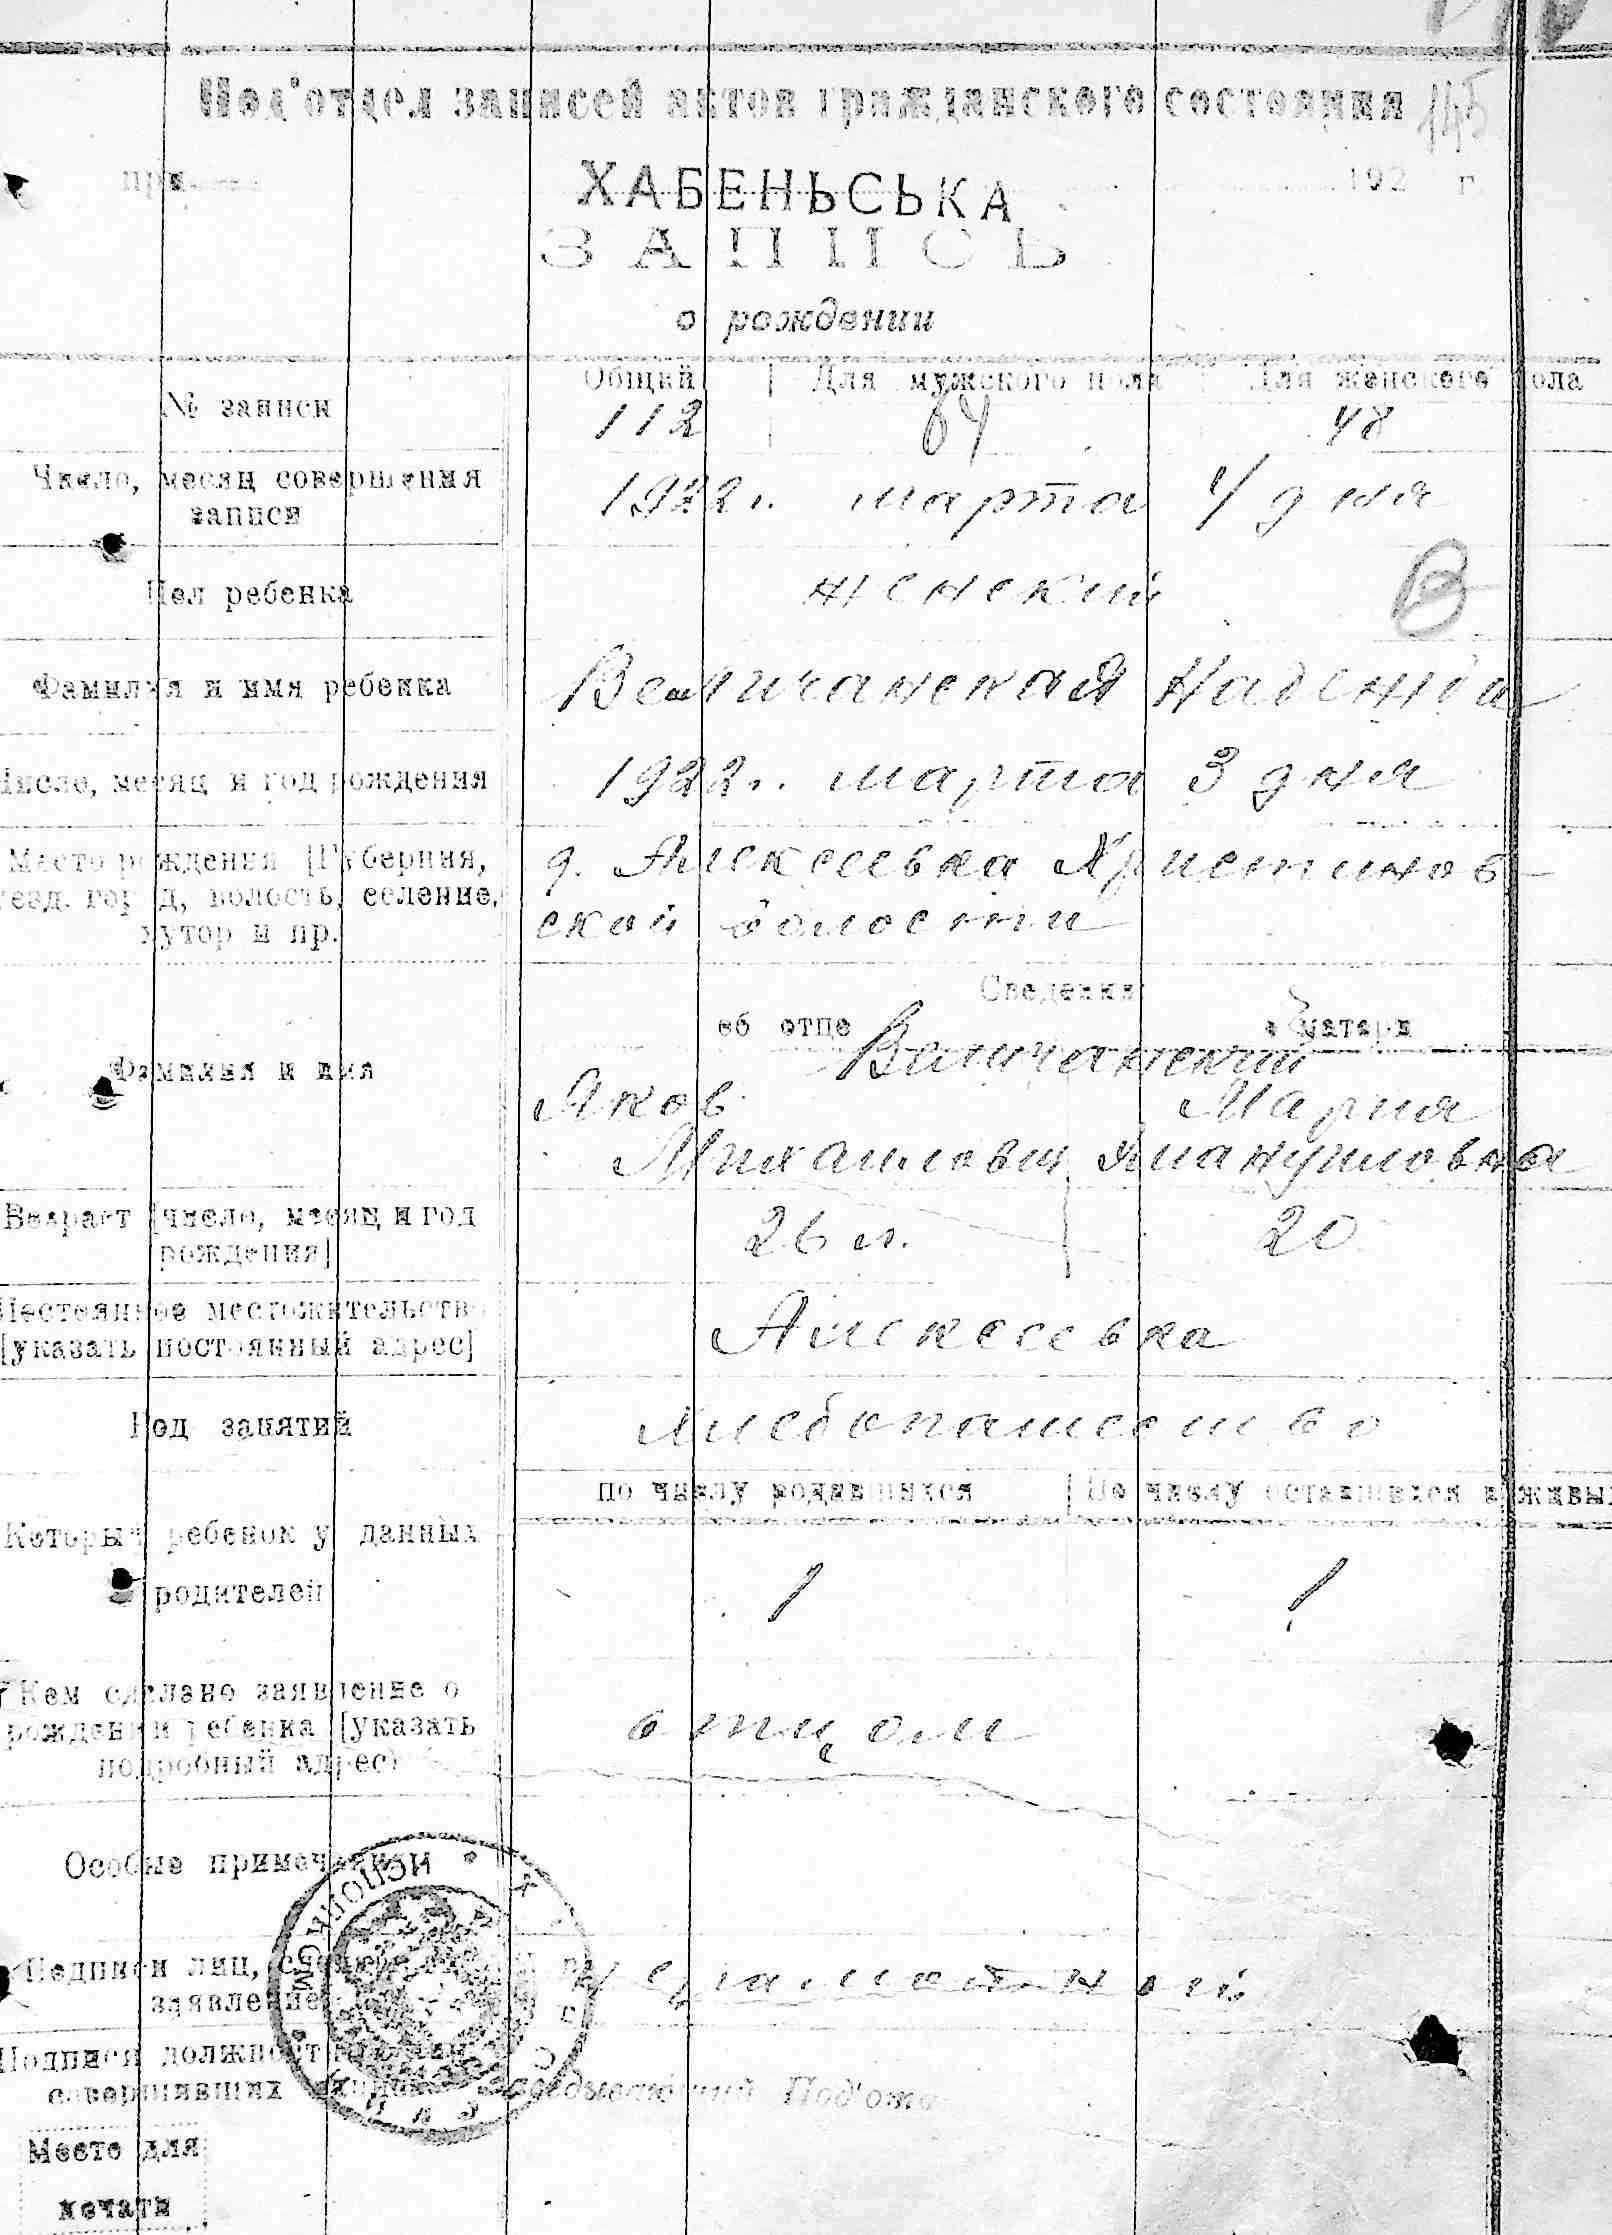 Под'отдел записей актов гражданского состояния 145
при 192 г.
ХАБЕНЬСЬКА
ЗАПИСЬ
о рождении
№ записи
Общий Для мужского пола Для женского пола
112 64 48
Число, месяц совершения
записи
1922 г. марта 4 дня
Пол ребенка
женский
В
Фамилия и имя ребенка
Величанская Надежда
Число, месяц и год рождения
1922 г. марта 3 дня
Место рождения [Губерния,
уезд, город, волость, селение,
хутор и пр.
д. Алексеевка Христинов-
ской волости
Сведения
об отце о матери
Фамилия и имя
Величанский
Яков Мария
Михайлович
Возраст [число, месяц и год
рождения]
26 л. 20
Постоянное местожительство
[указать постоянный адрес]
Алексеевка
Род занятий
Хлебопашество
по числу родившихся По числу оставшихся в живых
Который ребенок у данных
родителей
1 1
Кем сделано заявление о
рождении ребенка [указать
подробный адрес]
отцом
Особые примечания
ИСПОЛКОМ
Подписи лиц,
заявление
неграмотный
Подписи должност
совершивших
Под'отд
Место для
печати